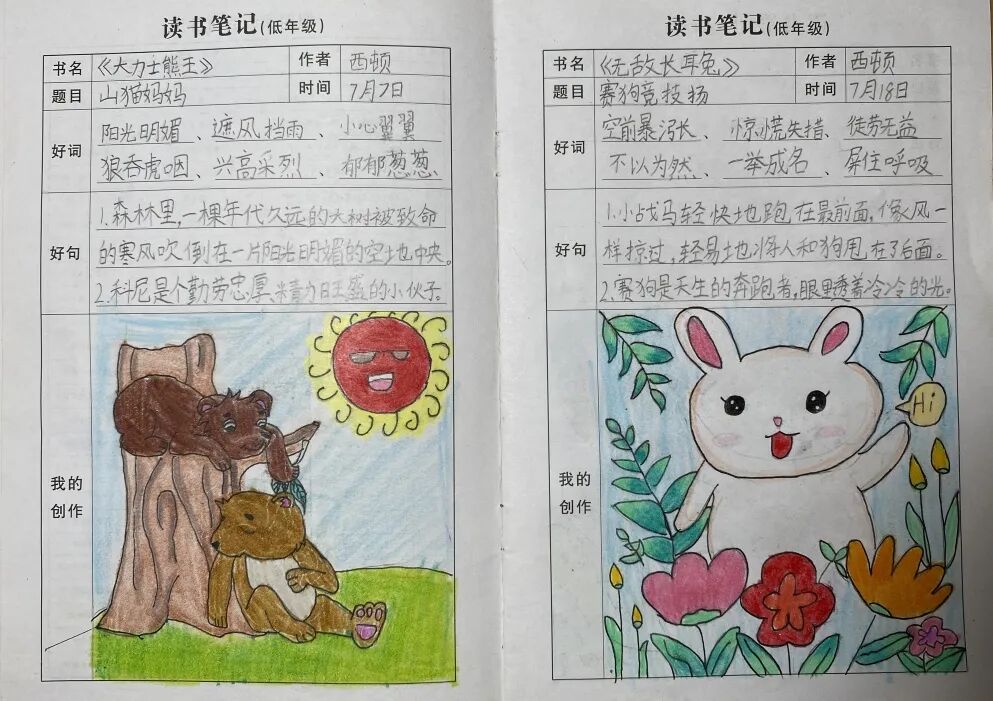 读书笔记(低年级)
书名 《大力士熊王》 作者 西顿
题目 山猫妈妈 时间 7月7日
好词 阳光明媚、遮风挡雨、小心翼翼
狼吞虎咽、兴高采烈、郁郁葱葱
好句 1.森林里,一棵年代久远的大树被致命
的寒风吹倒在一片阳光明媚的空地中央。
2.科尼是个勤劳忠厚、精力旺盛的小伙子。
我的
创作
读书笔记(低年级)
书名 《无敌长耳兔》 作者 西顿
题目 赛狗竞技扬 时间 7月18日
好词 空前暴泻长、惊慌失措、徒劳无益
不以为然、一举成名、屏住呼吸
好句 1.小战马轻快地跑在最前面,像风一
样掠过,轻易地将人和狗甩在了后面。
2.赛狗是天生的奔跑者,眼里透着冷冷的光。
我的
创作
Hi